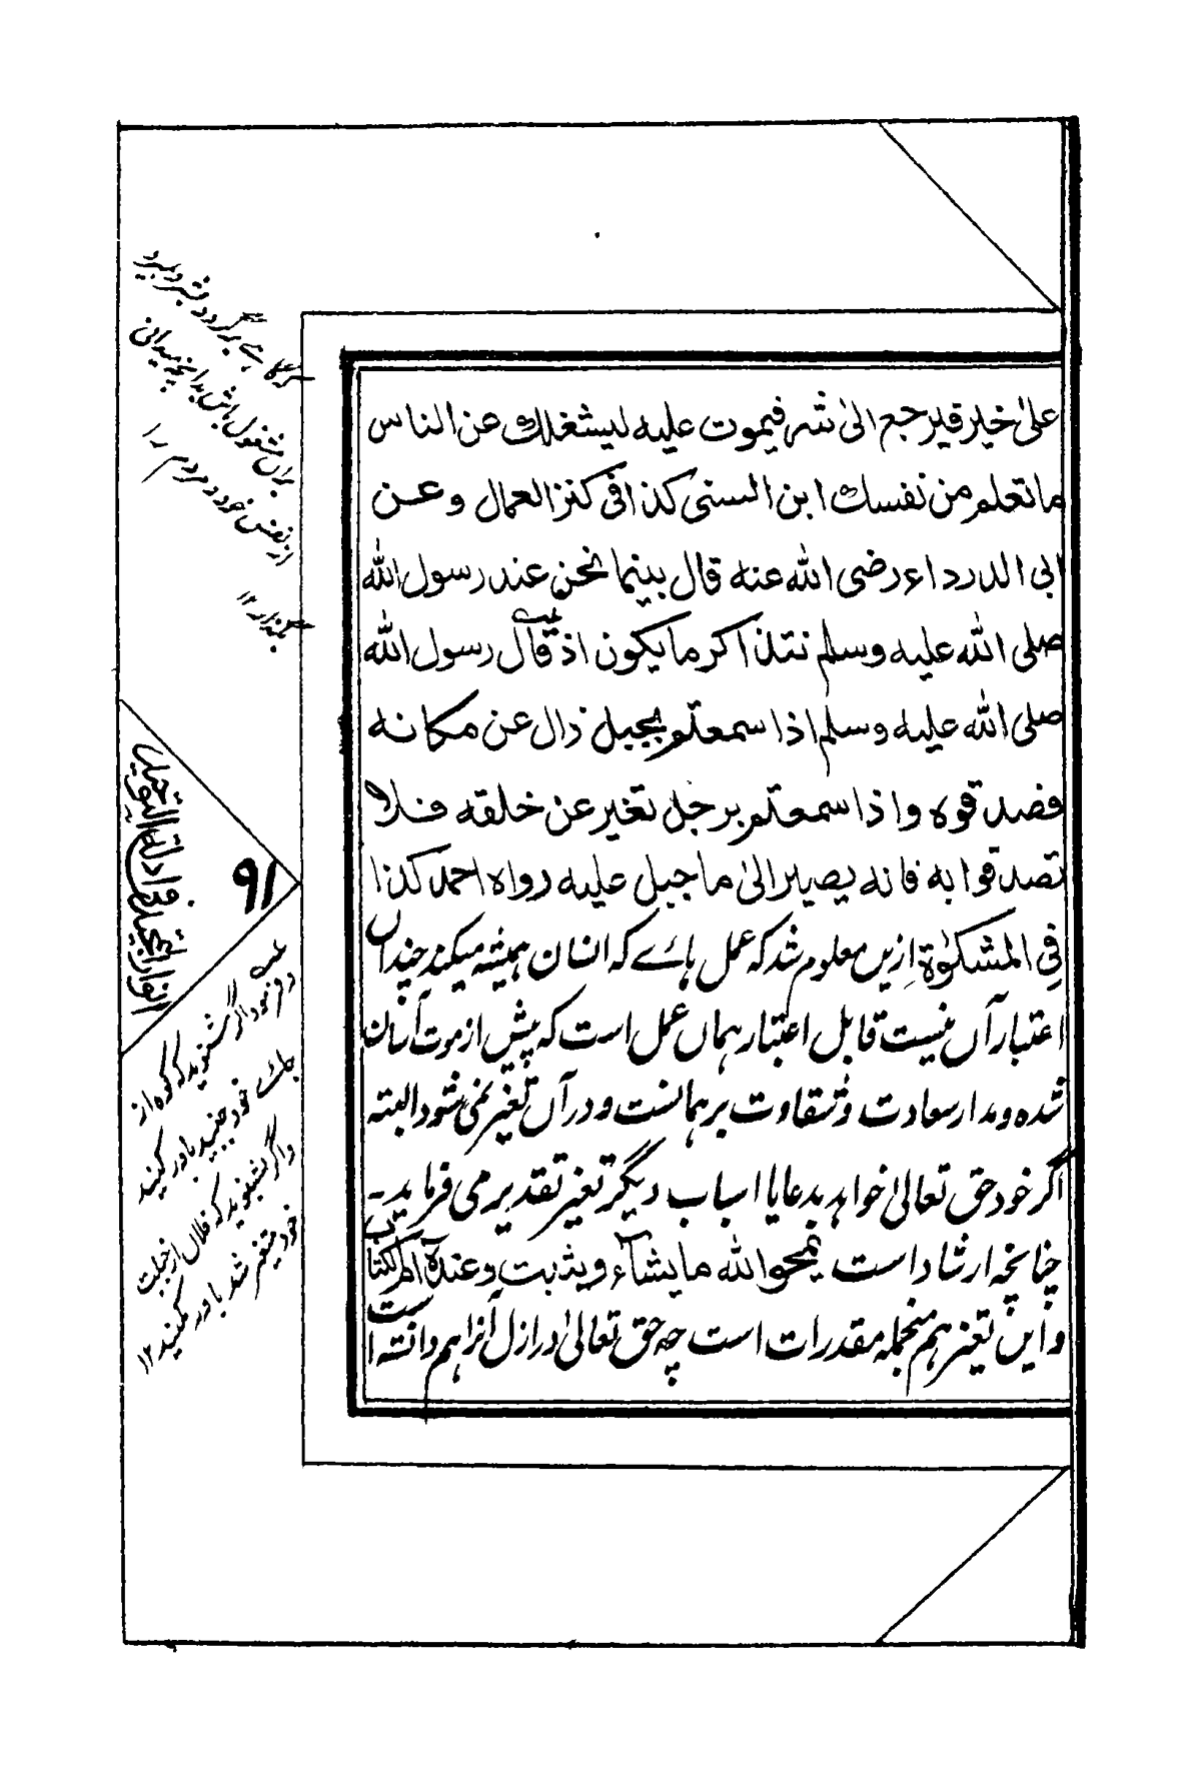 علیٰ خیر فیرجع الیٰ شر فیموت علیه لیشغلك عن الناس
ما تعلم من نفسك ابن السنی کذا فی کنز العمال وعن
ابی الدرداء رضی الله عنه قال بینما نحن عند رسول الله
صلی الله علیه وسلم نتذاکر ما یکون اذ قال رسول الله
صلی الله علیه وسلم اذا سمعتم بجبل زال عن مکانه
فصدقوه واذا سمعتم برجل تغیر عن خلقه فلا
تصدقوا به فانه یصیر الیٰ ما جبل علیه رواه احمد کذا
فِی المشکوٰة ازیں معلوم شد که عمل هائے که انسان همیشه میکند چنداں
اعتبار آں نیست قابل اعتبار هماں عمل است که پیش از موت آسان
شده ومدار سعادت وشقاوت بر همانست ودر آں تغیر نمی شود البته
اگر خود حق تعالیٰ خواهد بدعا یا اسباب دیگر تغیر تقدیر می فرماید۔
چنانچه ارشاد است یمحو الله ما یشآء ویثبت وعندهٓ ام الکتاب
واین تغیر هم منجمله مقدرات است چه حق تعالیٰ در ازل آنرا هم دانسته است
گاهے برگردد بشر ومیرد
براں مشغول باش بدانچه میدانی
از نفس خود ومردم را
بگذار ۱۲
۹۱
وفرمود اگر شنوید که کوه از
جائے خود جنبید باور کنید
واگر بشنوید که فلاں از جبلت
خود متغیر شد باور مکنید ۱۲